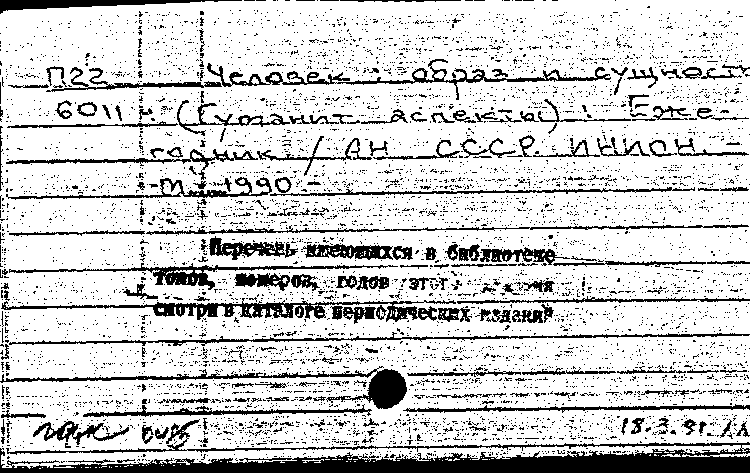 П22 Человек : образ и сущность
6011 ч (Гуманит. аспекты) : Еже-
годник / АН СССР. ИНИОН. -
М., 1990 -
Перечень имеющихся в библиотеке
томов, номеров, годов этого издания
смотри в каталоге периодических изданий
18.3.91.